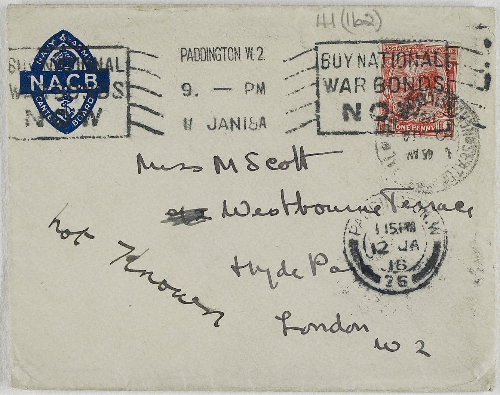 41(1b2)
NAVY & ARMY
NACB
CANTEEN BOARD
BUY NATIONAL
WAR BONDS
NOW
PADDINGTON W.2.
9. — PM
11 JAN 18 A
BUY NATIONAL
WAR BONDS
NOW
ONE PENNY
Miss M Scott
Westbourne Terrace
Hyde Pa
London
W2
not Known
PADDINGTON. W
1 15PM
12 JA
18
26